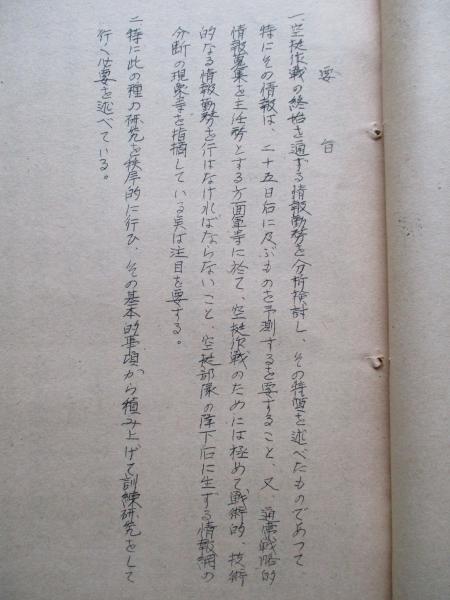 要旨
一、空挺作戦の終始を通ずる情報勤務を分析検討し、その特質を述べたものであつて、
特にその情報は、二十五日后に及ぶものを予測するを要すること、又、通常戦略的
情報蒐集を主任務とする方面軍等に於て、空挺作戦のためには極めて戦術的、技術
的なる情報勤務を行はなければならないこと、空挺部隊の降下后に生ずる情報網の
分断の現象等を指摘している点は注目を要する。
二、特に此の種の研究を秩序的に行ひ、その基本的事項から積み上げて訓練研究をして
行く必要を述べている。